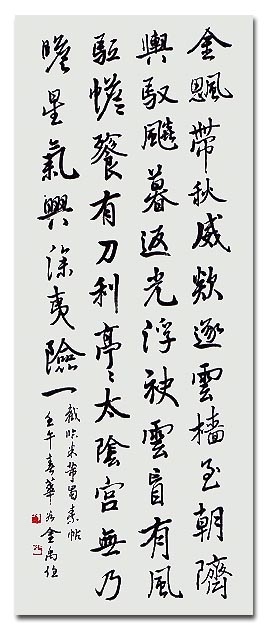 金飈帶秋威欻逐雲檣至朝隮
輿馭飈暮返光浮袂雲盲有風
駈蟾餮有刀利亭〻太陰宮無乃
瞻星氣興深夷險一
截臨米芾蜀素帖
壬午春華金禹